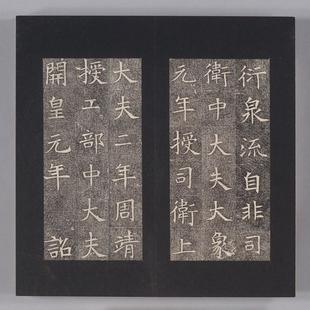 衍泉流自非司
衛中大夫大象
元年授司衛上
大夫二年周靖
授工部中大夫
開皇元年 詔